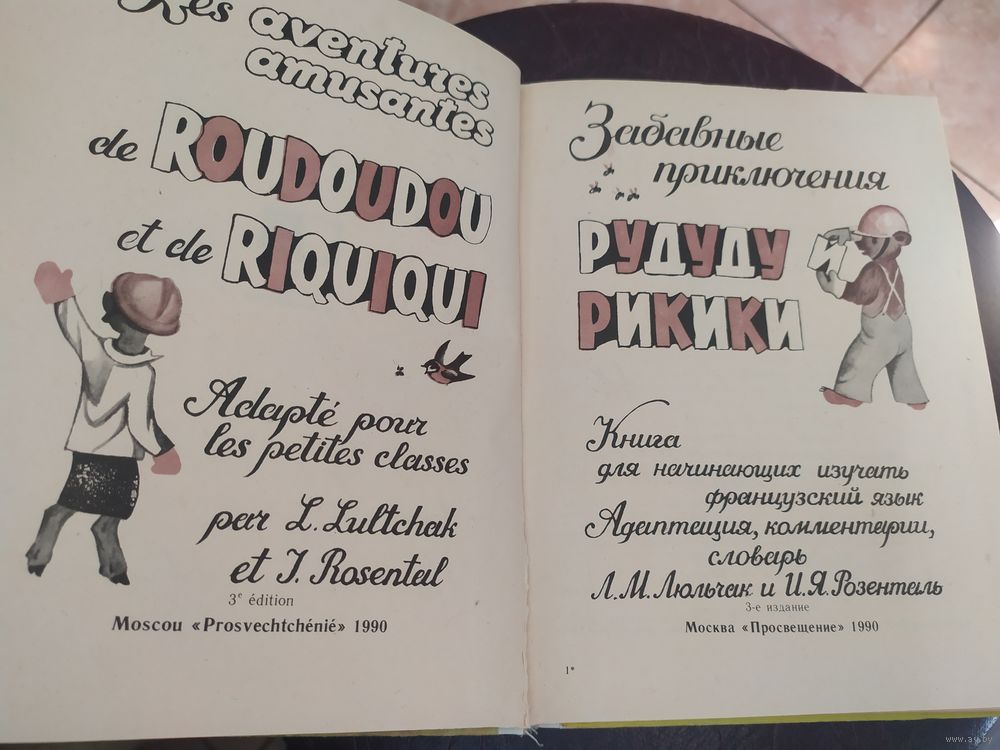 Les aventures
amusantes
de ROUDOUDOU
et de RIQUIQUI
Adapté pour
les petites classes
par L. Lultchak
et J. Rosental
3e édition
Moscou «Prosvechtchénié» 1990
Забавные
приключения
РУДУДУ И
РИКИКИ
Книга
для начинающих изучать
французский язык
Адаптация, комментарии,
словарь
Л.М. Люльчак и И.Я. Розенталь
3-е издание
Москва «Просвещение» 1990
1*
www.ay.by